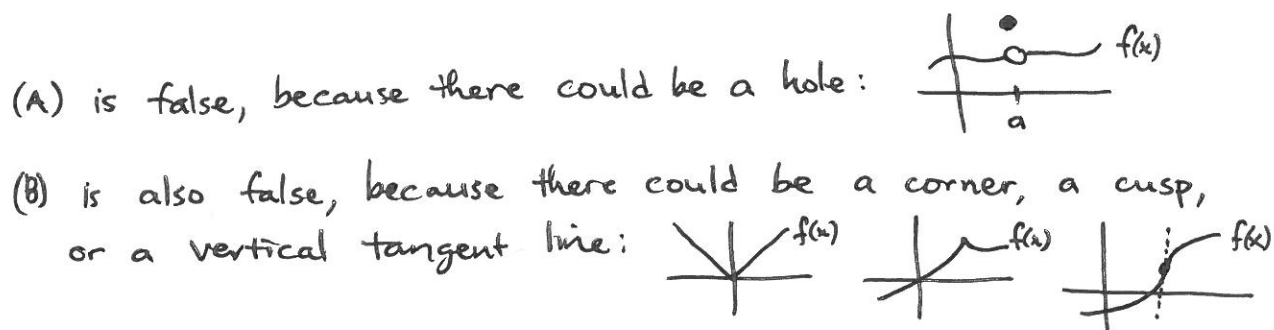 (A) is false, because there could be a hole: f(x)
a
(B) is also false, because there could be a corner, a cusp,
or a vertical tangent line: f(x) f(x) f(x)